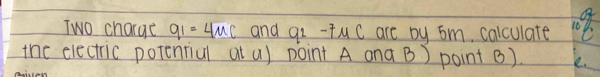 Two charge q1 = 4μC and q2 -7μC are by 5m. calculate
the electric potential at a) point A and B) point B).
Given